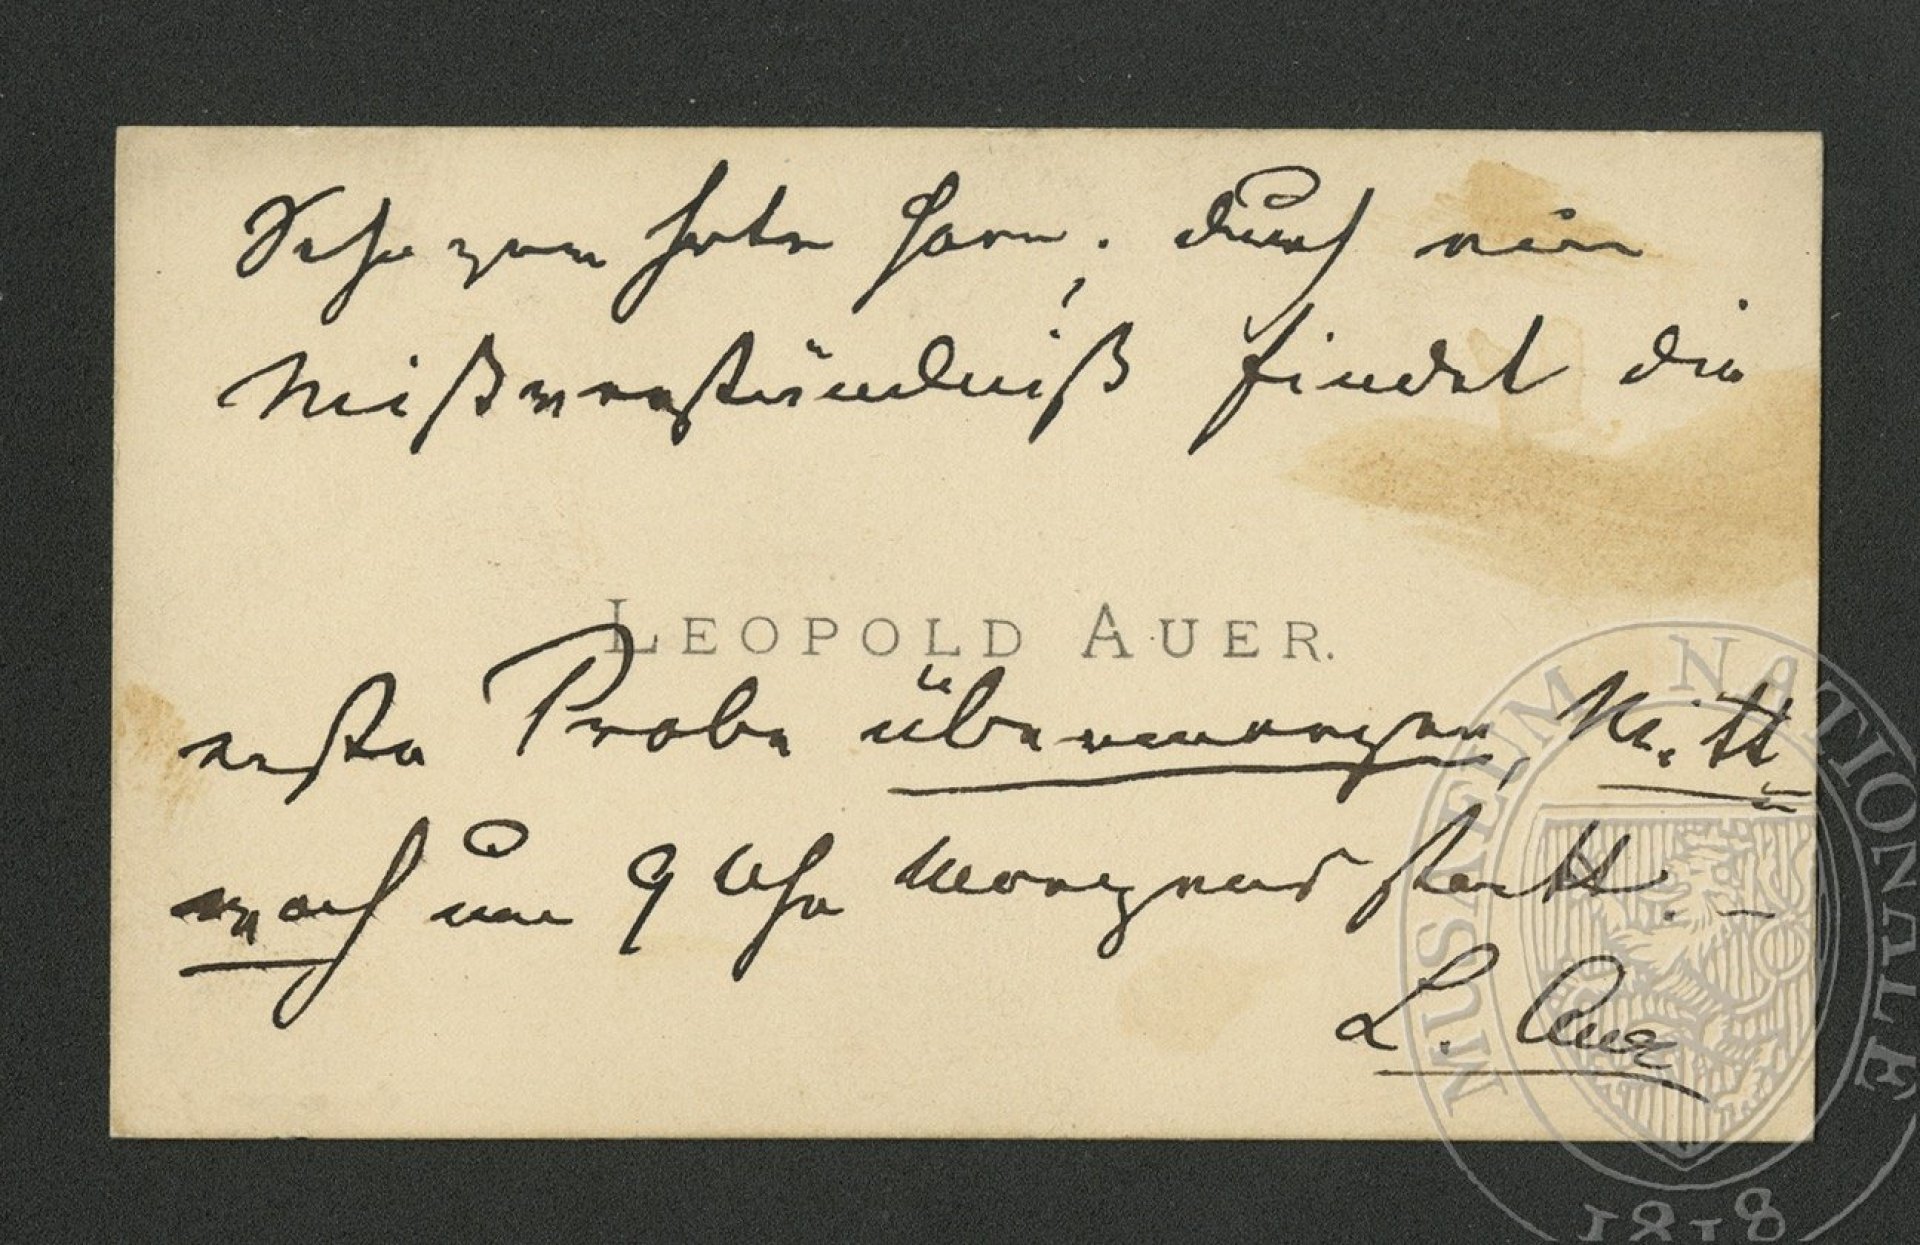 Sehr geehrter Herr, durch ein
Mißverständniß findet die
LEOPOLD AUER.
erste Probe übermorgen, Mitt-
woch um 9 Uhr Morgens statt. –
L. Auer
MUSAEUM NATIONALE
1818